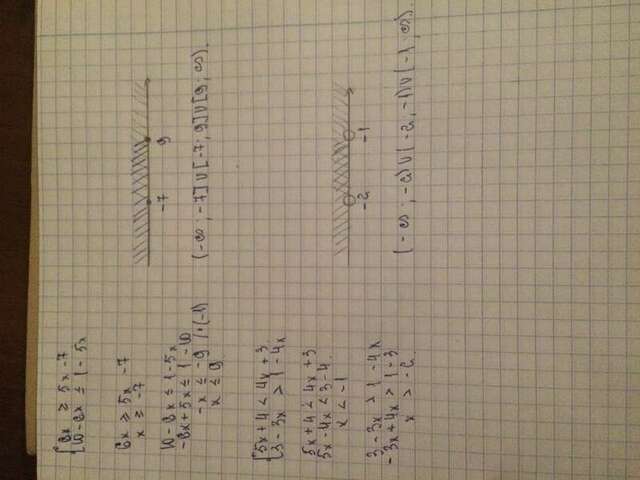 {6x ≥ 5x - 7
{10 - 6x ≤ 1 - 5x
6x ≥ 5x - 7
x ≥ -7
10 - 6x ≤ 1 - 5x
-6x + 5x ≤ 1 - 10
-x ≤ -9 /·(-1)
x ≤ 9
-7 9
(-∞ ; -7] ∪ [-7 ; 9] ∪ [9 ; ∞).
{5x + 4 < 4x + 3
{3 - 3x > 1 - 4x
5x + 4 < 4x + 3
5x - 4x < 3 - 4.
x < -1
3 - 3x > 1 - 4x
-3x + 4x > 1 - 3
x > -2.
-2 -1
(-∞ ; -2) ∪ (-2, -1) ∪ (-1 ; ∞).